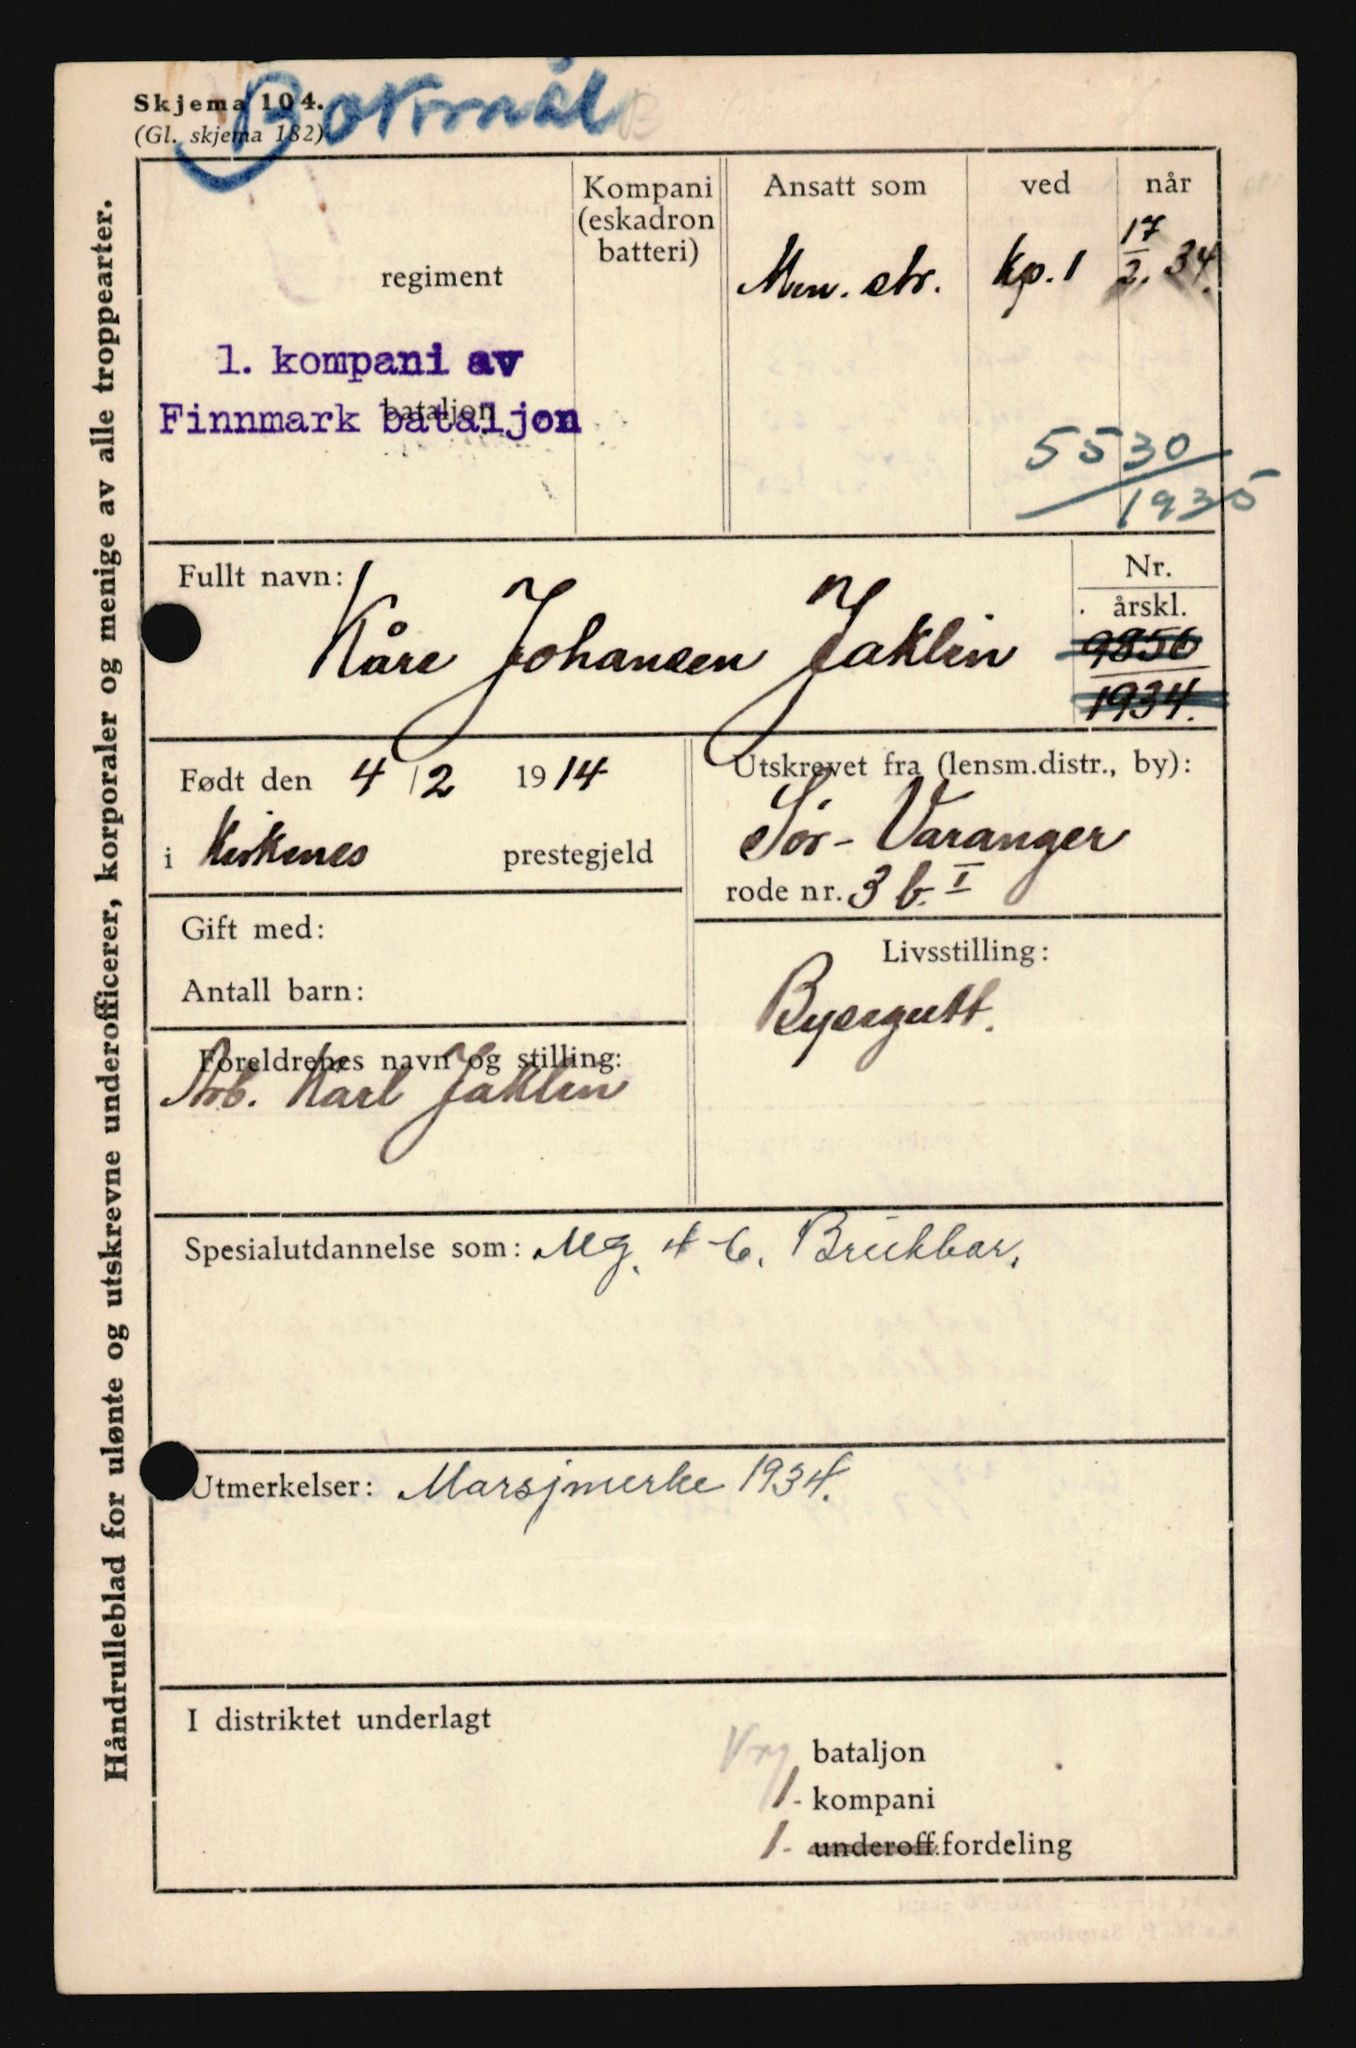 Bokmål
Skjema 104.
(Gl. skjema 182)
Håndrulleblad for ulønte og utskrevne underofficerer, korporaler og menige av alle troppearter.
regiment
1. kompani av
bataljon
Finnmark bataljon
Kompani
(eskadron
batteri)
Ansatt som
ved
når
Men. str.
Kp. 1
17/2. 34.
5530
1935
Fullt navn:
Kåre Johansen Jaklin
Nr.
årskl.
9856
1934.
Født den 4/2 1914
i Kirkenes prestegjeld
Utskrevet fra (lensm.distr., by):
Sör-Varanger
rode nr. 3 b. I
Gift med:
Antall barn:
Livsstilling:
Bysegutt.
Foreldrenes navn og stilling:
Arb. Karl Jaklin
Spesialutdannelse som: Mg. 4-6.
Utmerkelser: Marsjmerke 1934.
I distriktet underlagt
Vrg bataljon
1. kompani
1. underoff.fordeling